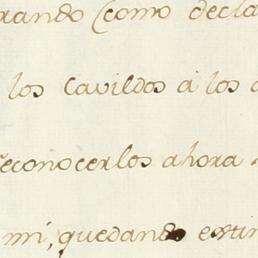 rando (como decla
los Cavildos á los
econocerlos ahora
mi, quedando extin